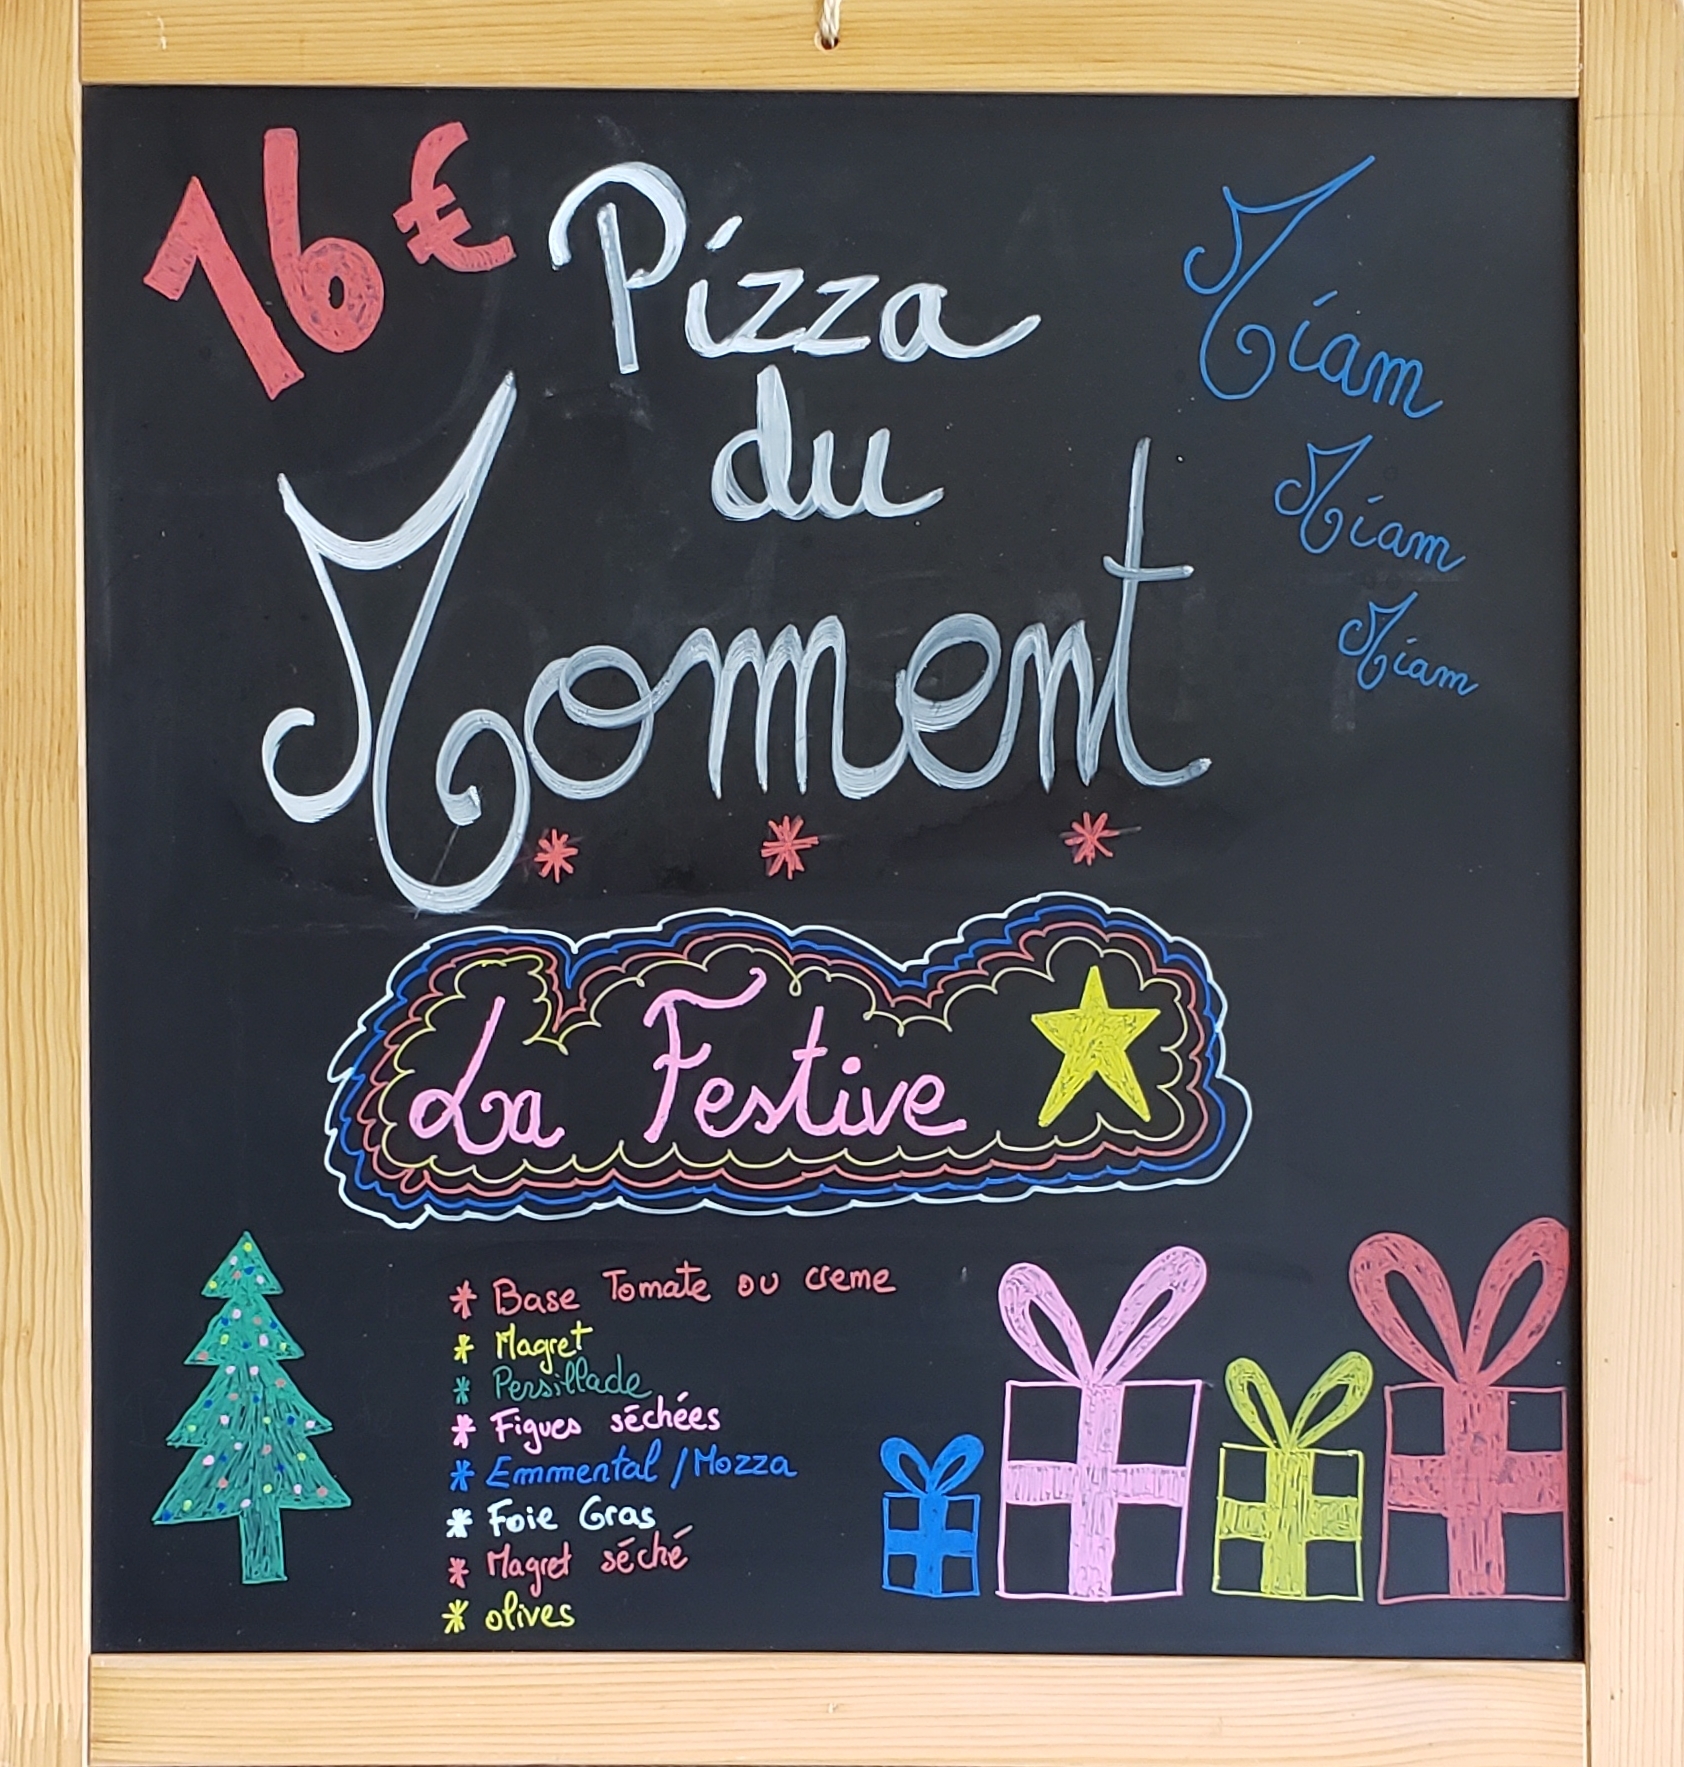 16€
Pizza
du
Moment
Miam
Miam
Miam
La Festive
* Base Tomate ou creme
* Magret
* Persillade
* Figues séchées
* Emmental / Mozza
* Foie Gras
* Magret séché
* olives